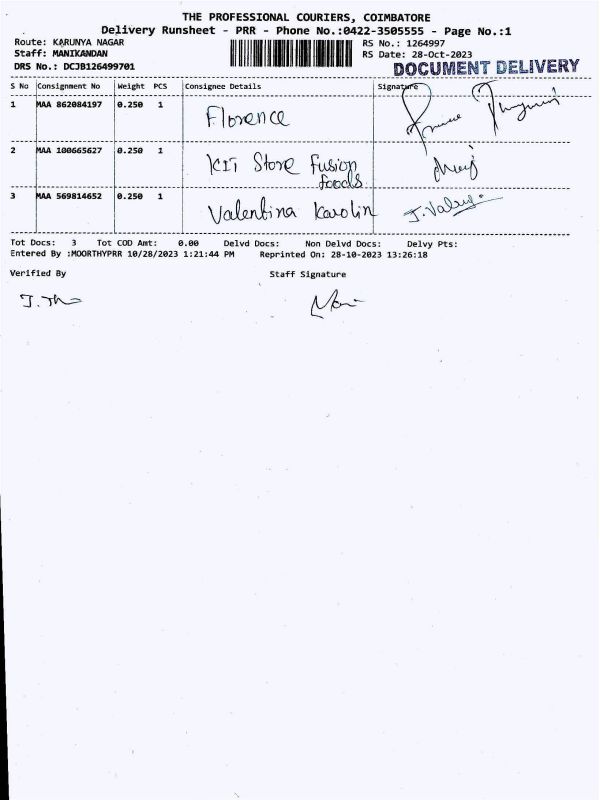 THE PROFESSIONAL COURIERS, COIMBATORE
Delivery Runsheet - PRR - Phone No.:0422-3505555 - Page No.:1
Route: KARUNYA NAGAR RS No.: 1264997
Staff: MANIKANDAN RS Date: 28-Oct-2023
DRS No.: DCJB126499701 DOCUMENT DELIVERY
S No Consignment No Weight PCS Consignee Details Signature
1 MAA 862084197 0.250 1 Florence
2 MAA 100665627 0.250 1 KIT Store Fusion
foods
3 MAA 569814652 0.250 1 Valentina Karolin
Tot Docs: 3 Tot COD Amt: 0.00 Delvd Docs: Non Delvd Docs: Delvy Pts:
Entered By :MOORTHYPRR 10/28/2023 1:21:44 PM Reprinted On: 28-10-2023 13:26:18
Verified By Staff Signature